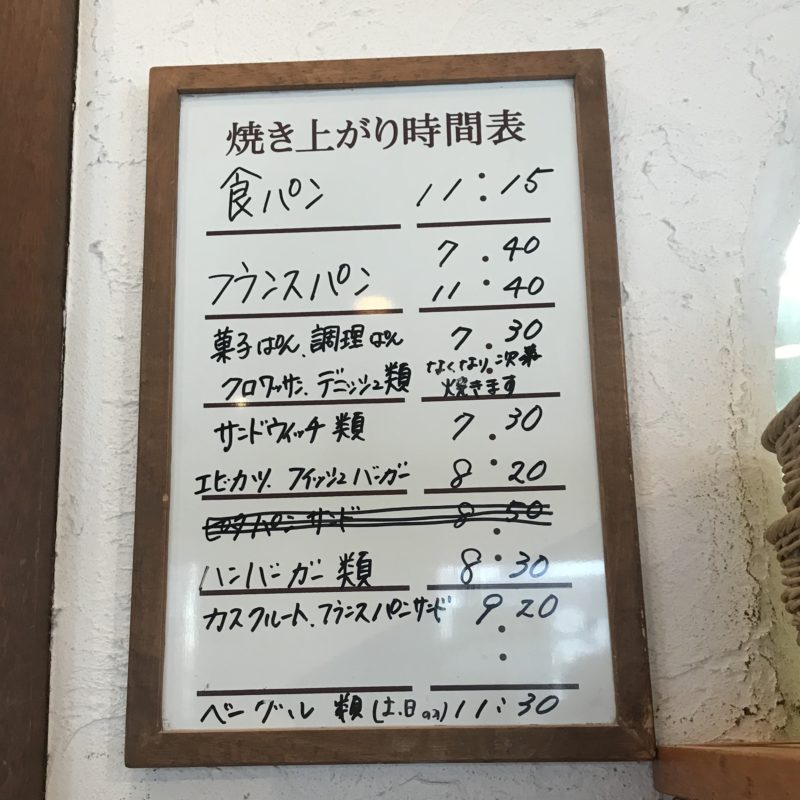 焼き上がり時間表
食パン 11:15
7.40
フランスパン 11:40
菓子ぱん、調理ぱん 7.30
クロワッサン、デニッシュ類 なくなり。次第
焼きます
サンドウィッチ類 7.30
エビ・カツ、フィッシュバーガー 8:20
ピタパンサンド 8.50
ハンバーガー類 8:30
カスクルート、フランスパンサンド 9 20
ベーグル類(土、日のみ) 11:30